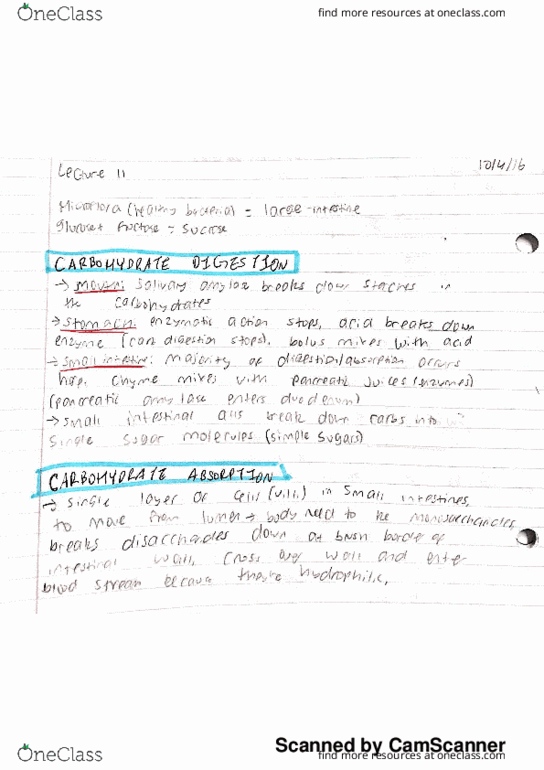 OneClass find more resources at oneclass.com
10/4/16
Lecture 11
Microflora (healthy bacteria) = large intestine
Glucose + fructose = sucrose
CARBOHYDRATE DIGESTION
→ Mouth: Salivary amylase breaks down starches in
the carbohydrates
→ Stomach: enzymatic action stops, acid breaks down
enzyme (carb digestion stops). bolus mixes with acid
→ Small intestine: Majority of digestion/absorption occurs
here. Chyme mixes with pancreatic juices (enzymes)
(pancreatic amylase enters duodenum)
→ Small intestinal cells break down carbs into
Single sugar molecules (simple sugars)
CARBOHYDRATE ABSORPTION
→ Single layer of cells (villi) in small intestines,
to move from lumen → body need to be monosaccharides
breaks disaccharides down at brush border of
intestinal wall. Cross wall and enter
blood stream because they're hydrophilic.
Scanned by CamScanner
OneClass find more resources at oneclass.com